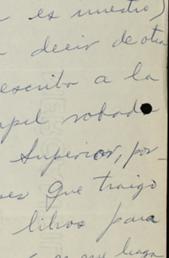 es nuestro)
decir de otra
escribo a la
papel robado
Superior, por-
que traigo
libros para